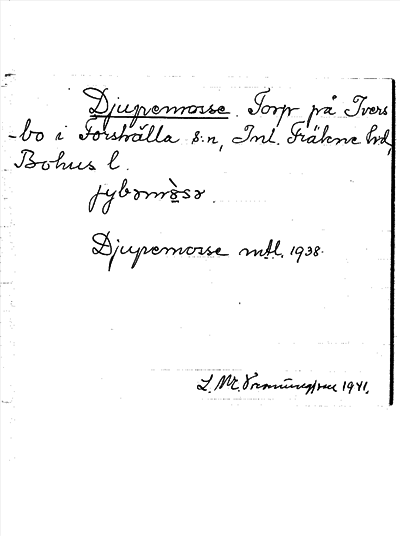 Djupemosse. Torp på Ivers
-bo i Forshälla s:n, Inl. Fräkne hd,
Bohus l.
jybəmòsə.
Djupemosse mtl. 1938.
1941.